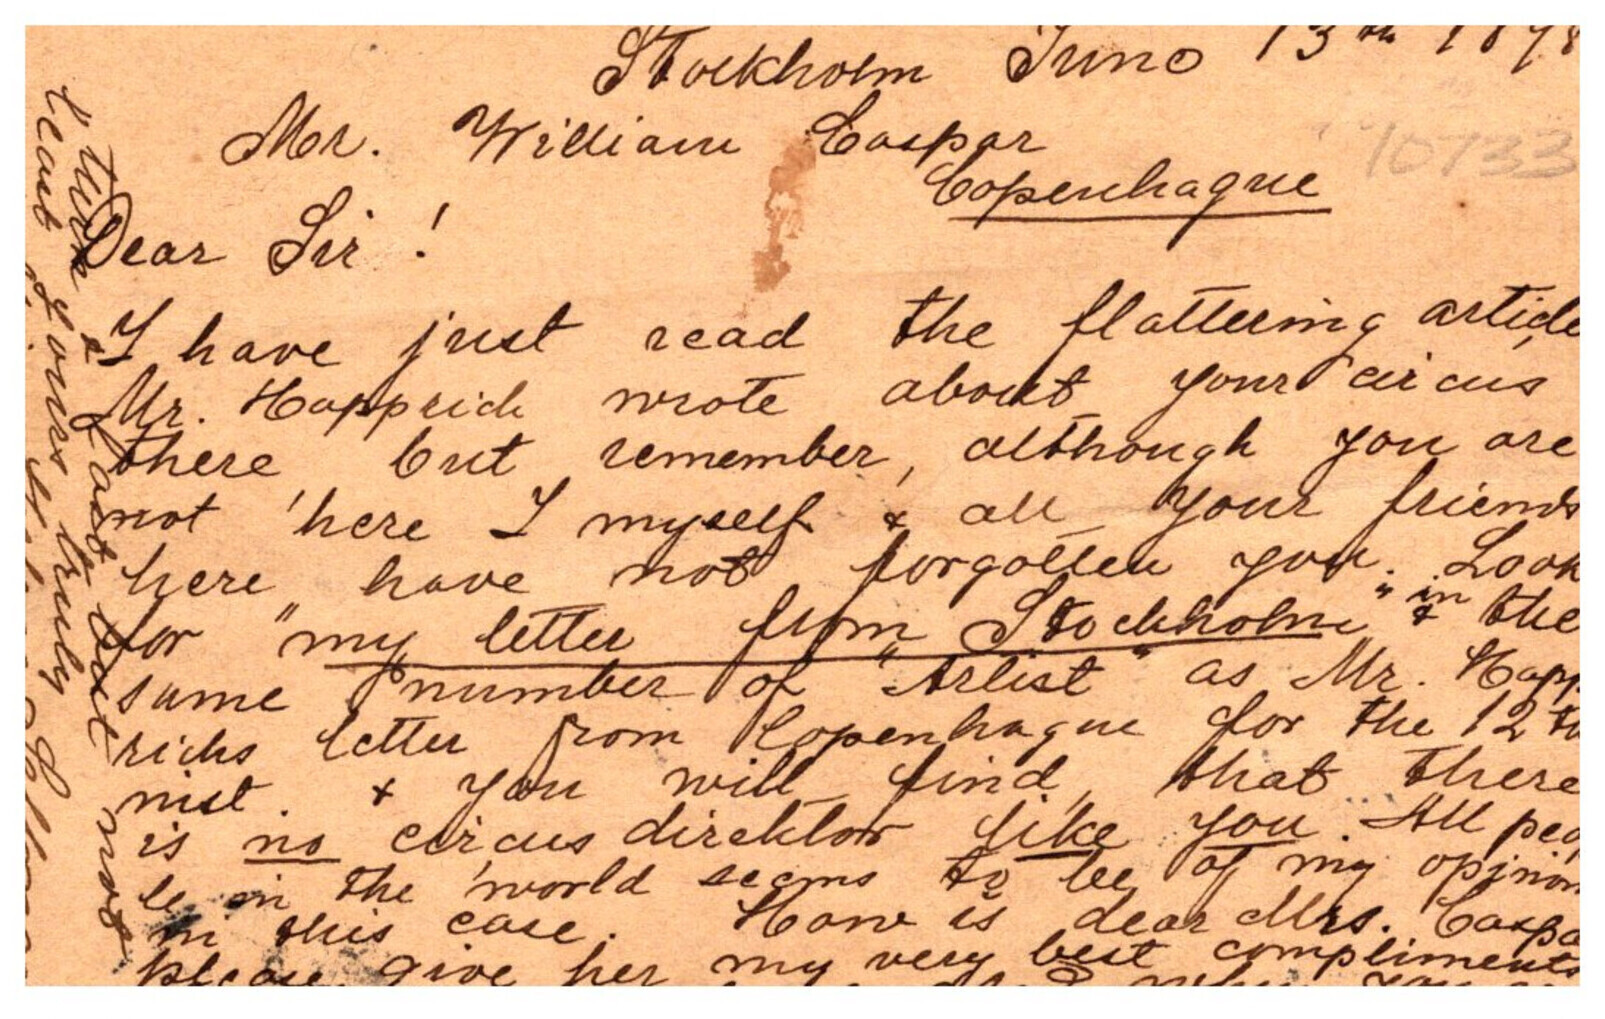 Stockholm Juno 13th 189
Mr. William Caspar
10733
Copenhague
Dear Sir!
I have just read the flattering article
Mr. Happrich wrote about your circus
there but remember, although you are
not here I myself & all your friends
here have not forgotten you. Look
for "my letter from Stockholm" & in the
same number of "Artist" as Mr. Happ
richs letter from Copenhague for the 12 tu
nist. & you will find, that there
is no circus direktor like you. All peo
le in the world seems to be of my opinion
in this case. How is dear Mrs. Caspa
please give her my very best compliments
when you
then & last but not
least yours truly